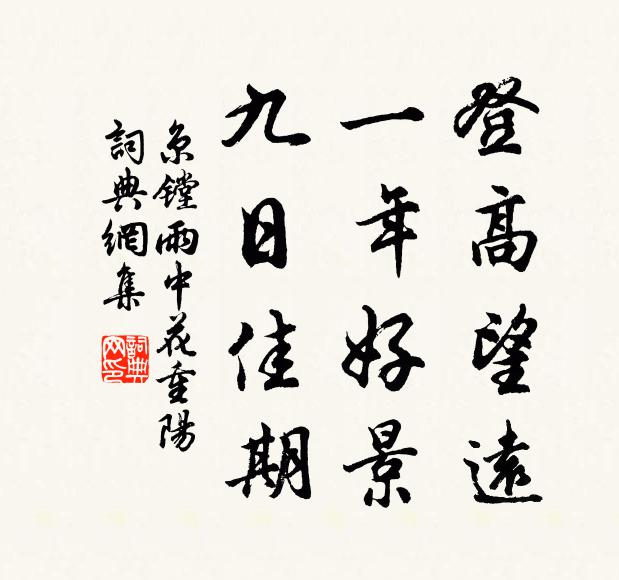 登高望遠
一年好景
九日佳期
京鏜雨中花重陽
詞典網集
詞典網印